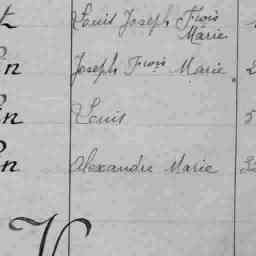 Louis Joseph Frois
Marie
n Joseph Frois Marie
n Louis 5
n Alexandre Marie